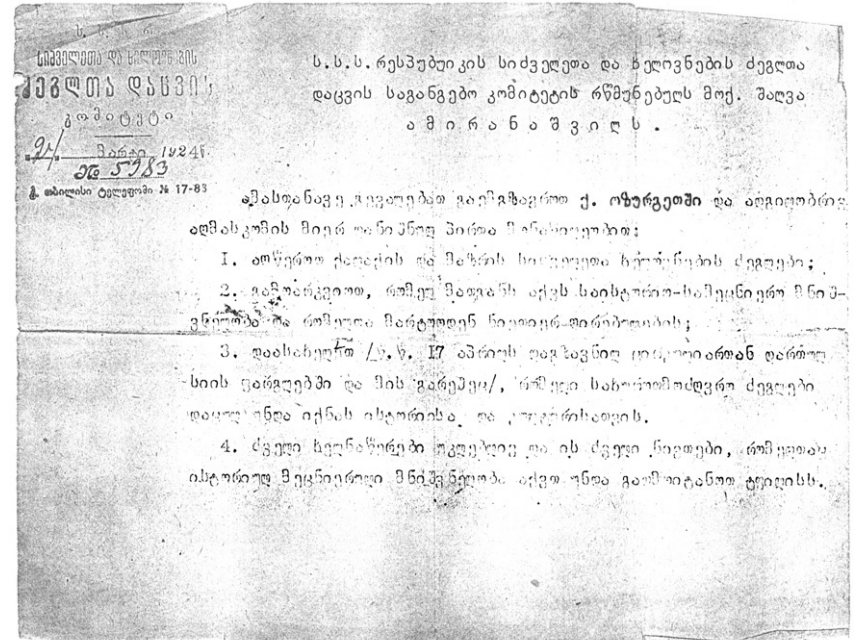 ს. ს. ს. რ.
სიძველეთა და ხელოვნების
ძეგლთა დაცვის
კომიტეტი
მარტი 1924წ
№ 5983
ქ. თბილისი ტელეფონი № 17-83
ს.ს.ს. რესპუბუიკის სიძველეთა და ხელივნების ძეგლთა
დაცვის საგანგებო კომიტეტის რწმუნებულს მოქ. შალვა
ამირანაშვილს.
ამასთანავე გევალებათ გაემგზავროთ ქ. ოზურგეთში და ადგილობრივ
აღმასკომის მიერ დანიშნულ პირთა მონაწილეობით:
I. აღწეროთ ქალაქის და მაზრის სიძველეთა ხელოვნების ძეგლები;
2. გამოარკვიოთ, რომელ მათგანს აქვს საისტორიო-სამეცნიერო მნიშ-
ვნელობა და რომელთა მარტოოდენ ნივთიერ-ღირებულების;
3. დაასახელოთ /ს.წ. I7 აპრილს დაგზავნილ ცირკულიართან დართულ
სიის ფარგლებში და მის გარეშეც/, რომელი ძეგლები
დაცულ უნდა იქნას ისტორიისა და კულტურისათვის.
4. ძველი ხელნაწერები უკლებლივ და ის ძველი ნივთები, რომელთაც
ისტორიულ მეცნიერული მნიშვნელობა აქვთ უნდა გადმოიტანოთ ტფილისს.